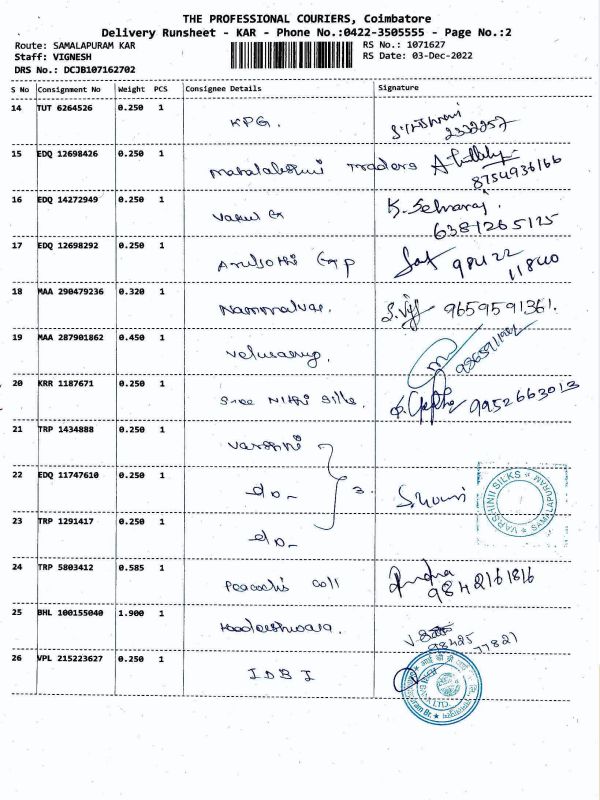 THE PROFESSIONAL COURIERS, Coimbatore
Delivery Runsheet - KAR - Phone No.:0422-3505555 - Page No.:2
Route: SAMALAPURAM KAR
RS No.: 1071627
Staff: VIGNESH
RS Date: 03-Dec-2022
DRS No.: DCJB107162702
S No Consignment No Weight PCS Consignee Details Signature
14 TUT 6264526 0.250 1 KPG.
15 EDQ 12698426 0.250 1 Mahalakshmi Traders 8754936166
16 EDQ 14272949 0.250 1 K. Selvaraj. 6381265125
17 EDQ 12698292 0.250 1 Aruljothi Exp 98422 11840
18 MAA 290479236 0.320 1 Nammalvar. 9659591361.
19 MAA 287901862 0.450 1 Velusamy.
20 KRR 1187671 0.250 1 Sree Nithi Silks. 9952663013
21 TRP 1434888 0.250 1 Varshni
22 EDQ 11747610 0.250 1 do- 3.
VARSHINII SILKS
SAMALAPURAM
23 TRP 1291417 0.250 1 do-
24 TRP 5803412 0.585 1 Peacocks Coll 9842161816
25 BHL 100155040 1.900 1 98425 77821
26 VPL 215223627 0.250 1 IDBI
LTD.